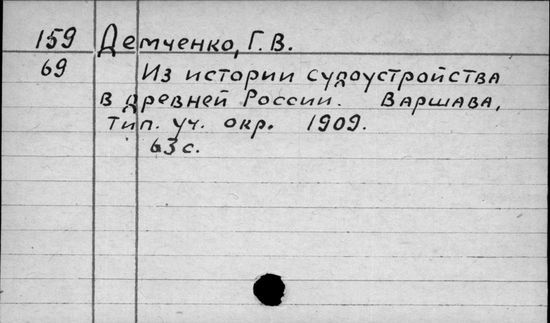 159 Демченко, Г. В.
69 Из истории судоустройства
в древней России. Варшава,
тип. уч. окр. 1909.
63 с.